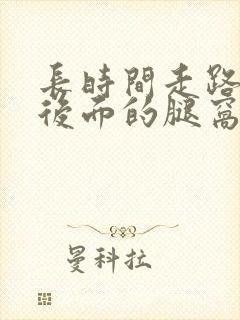 長時間走路
後面的腿窩
曼科拉